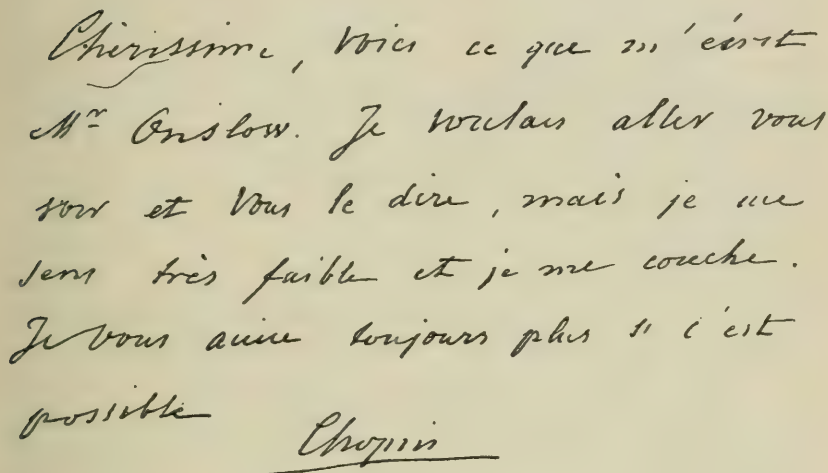 Chérissime, voici ce que m'écrit
Mr Onslow. Je voulais aller vous
voir et vous le dire, mais je me
sens très faible et je me couche.
Je vous aime toujours plus si c'est
possible
Chopin